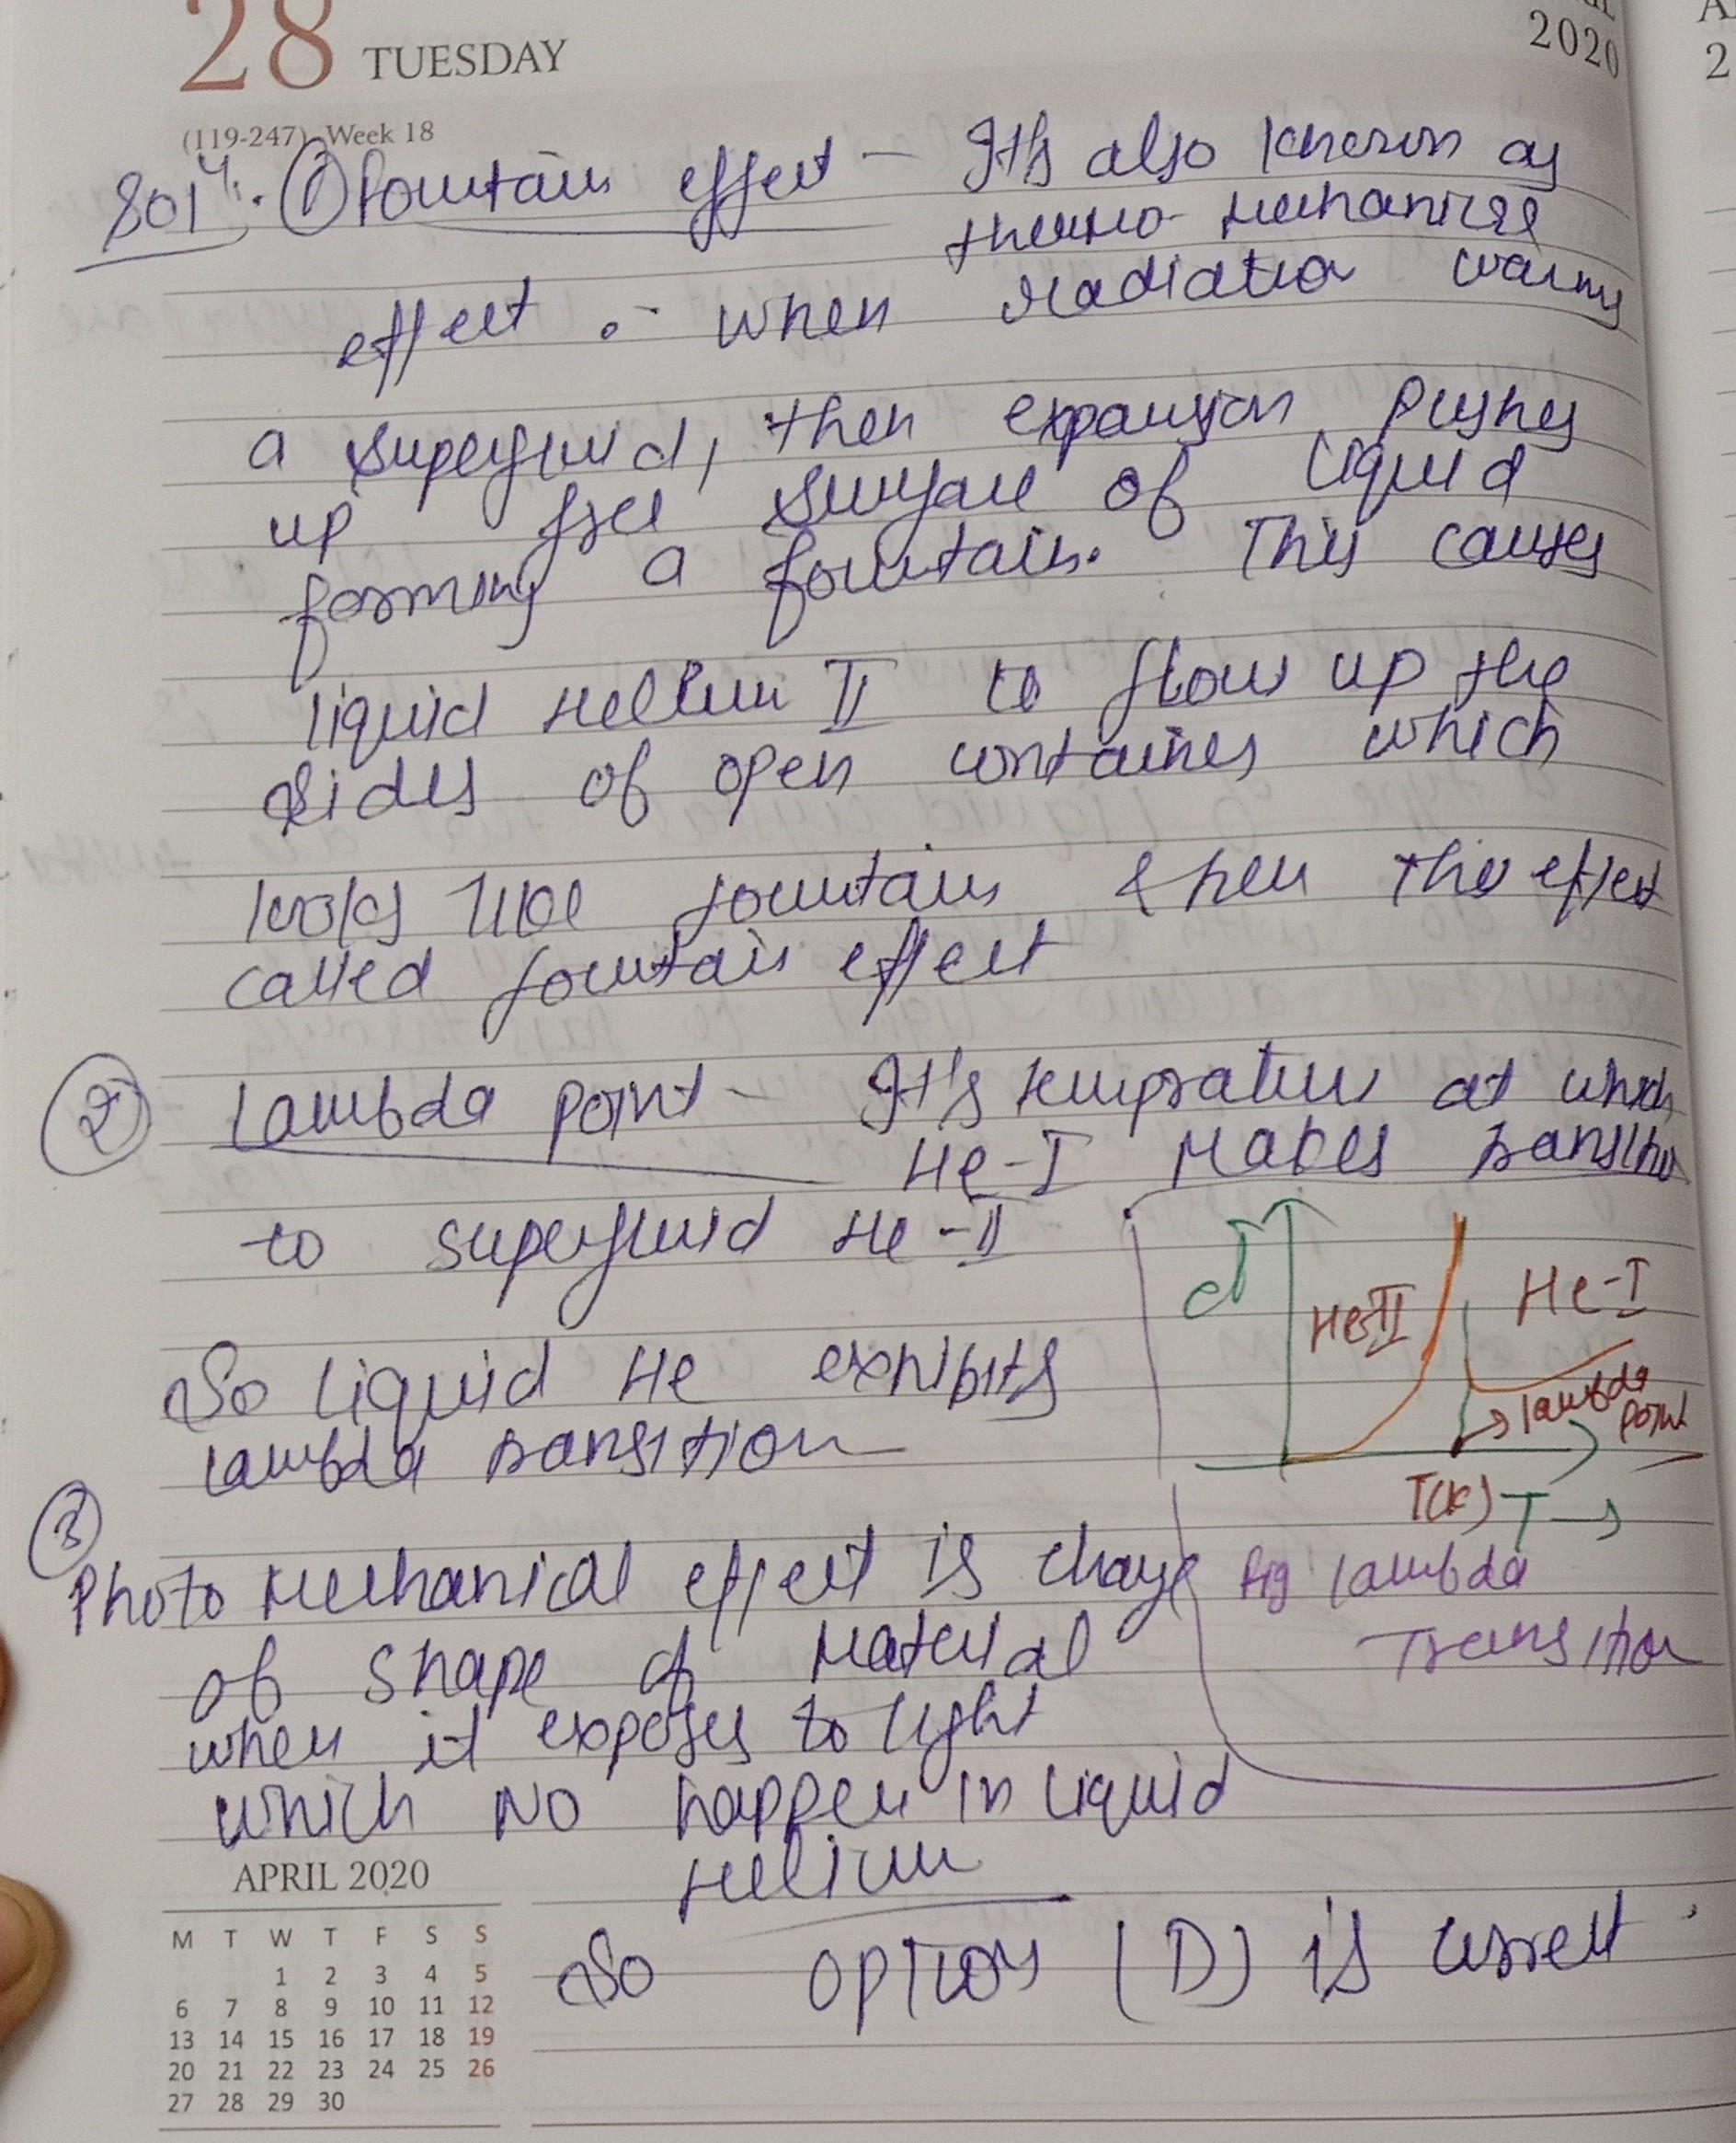 28 TUESDAY
2020
(119-247) Week 18
Solⁿ. ① Fountain effect - It's also known as
thermo-mechanical
effect :- when radiation warms
a superfluid, then expansion pushes
up free surface of liquid
forming a fountain. This causes
liquid Helium II to flow up the
sides of open containers which
looks like fountain & hen the effect
called fountain effect
② Lambda point - It's tempratur at which
He-I makes transition
to superfluid He-II
So liquid He exhibits
Lambda transition
He II
He-I
lambda
point
T(K) T →
fig lambda
Transition
③
Photo mechanical effect is change
of shape of material
when it exposes to light
which No happen in liquid
Helium
So option (D) is correct
APRIL 2020
M T W T F S S
1 2 3 4 5
6 7 8 9 10 11 12
13 14 15 16 17 18 19
20 21 22 23 24 25 26
27 28 29 30